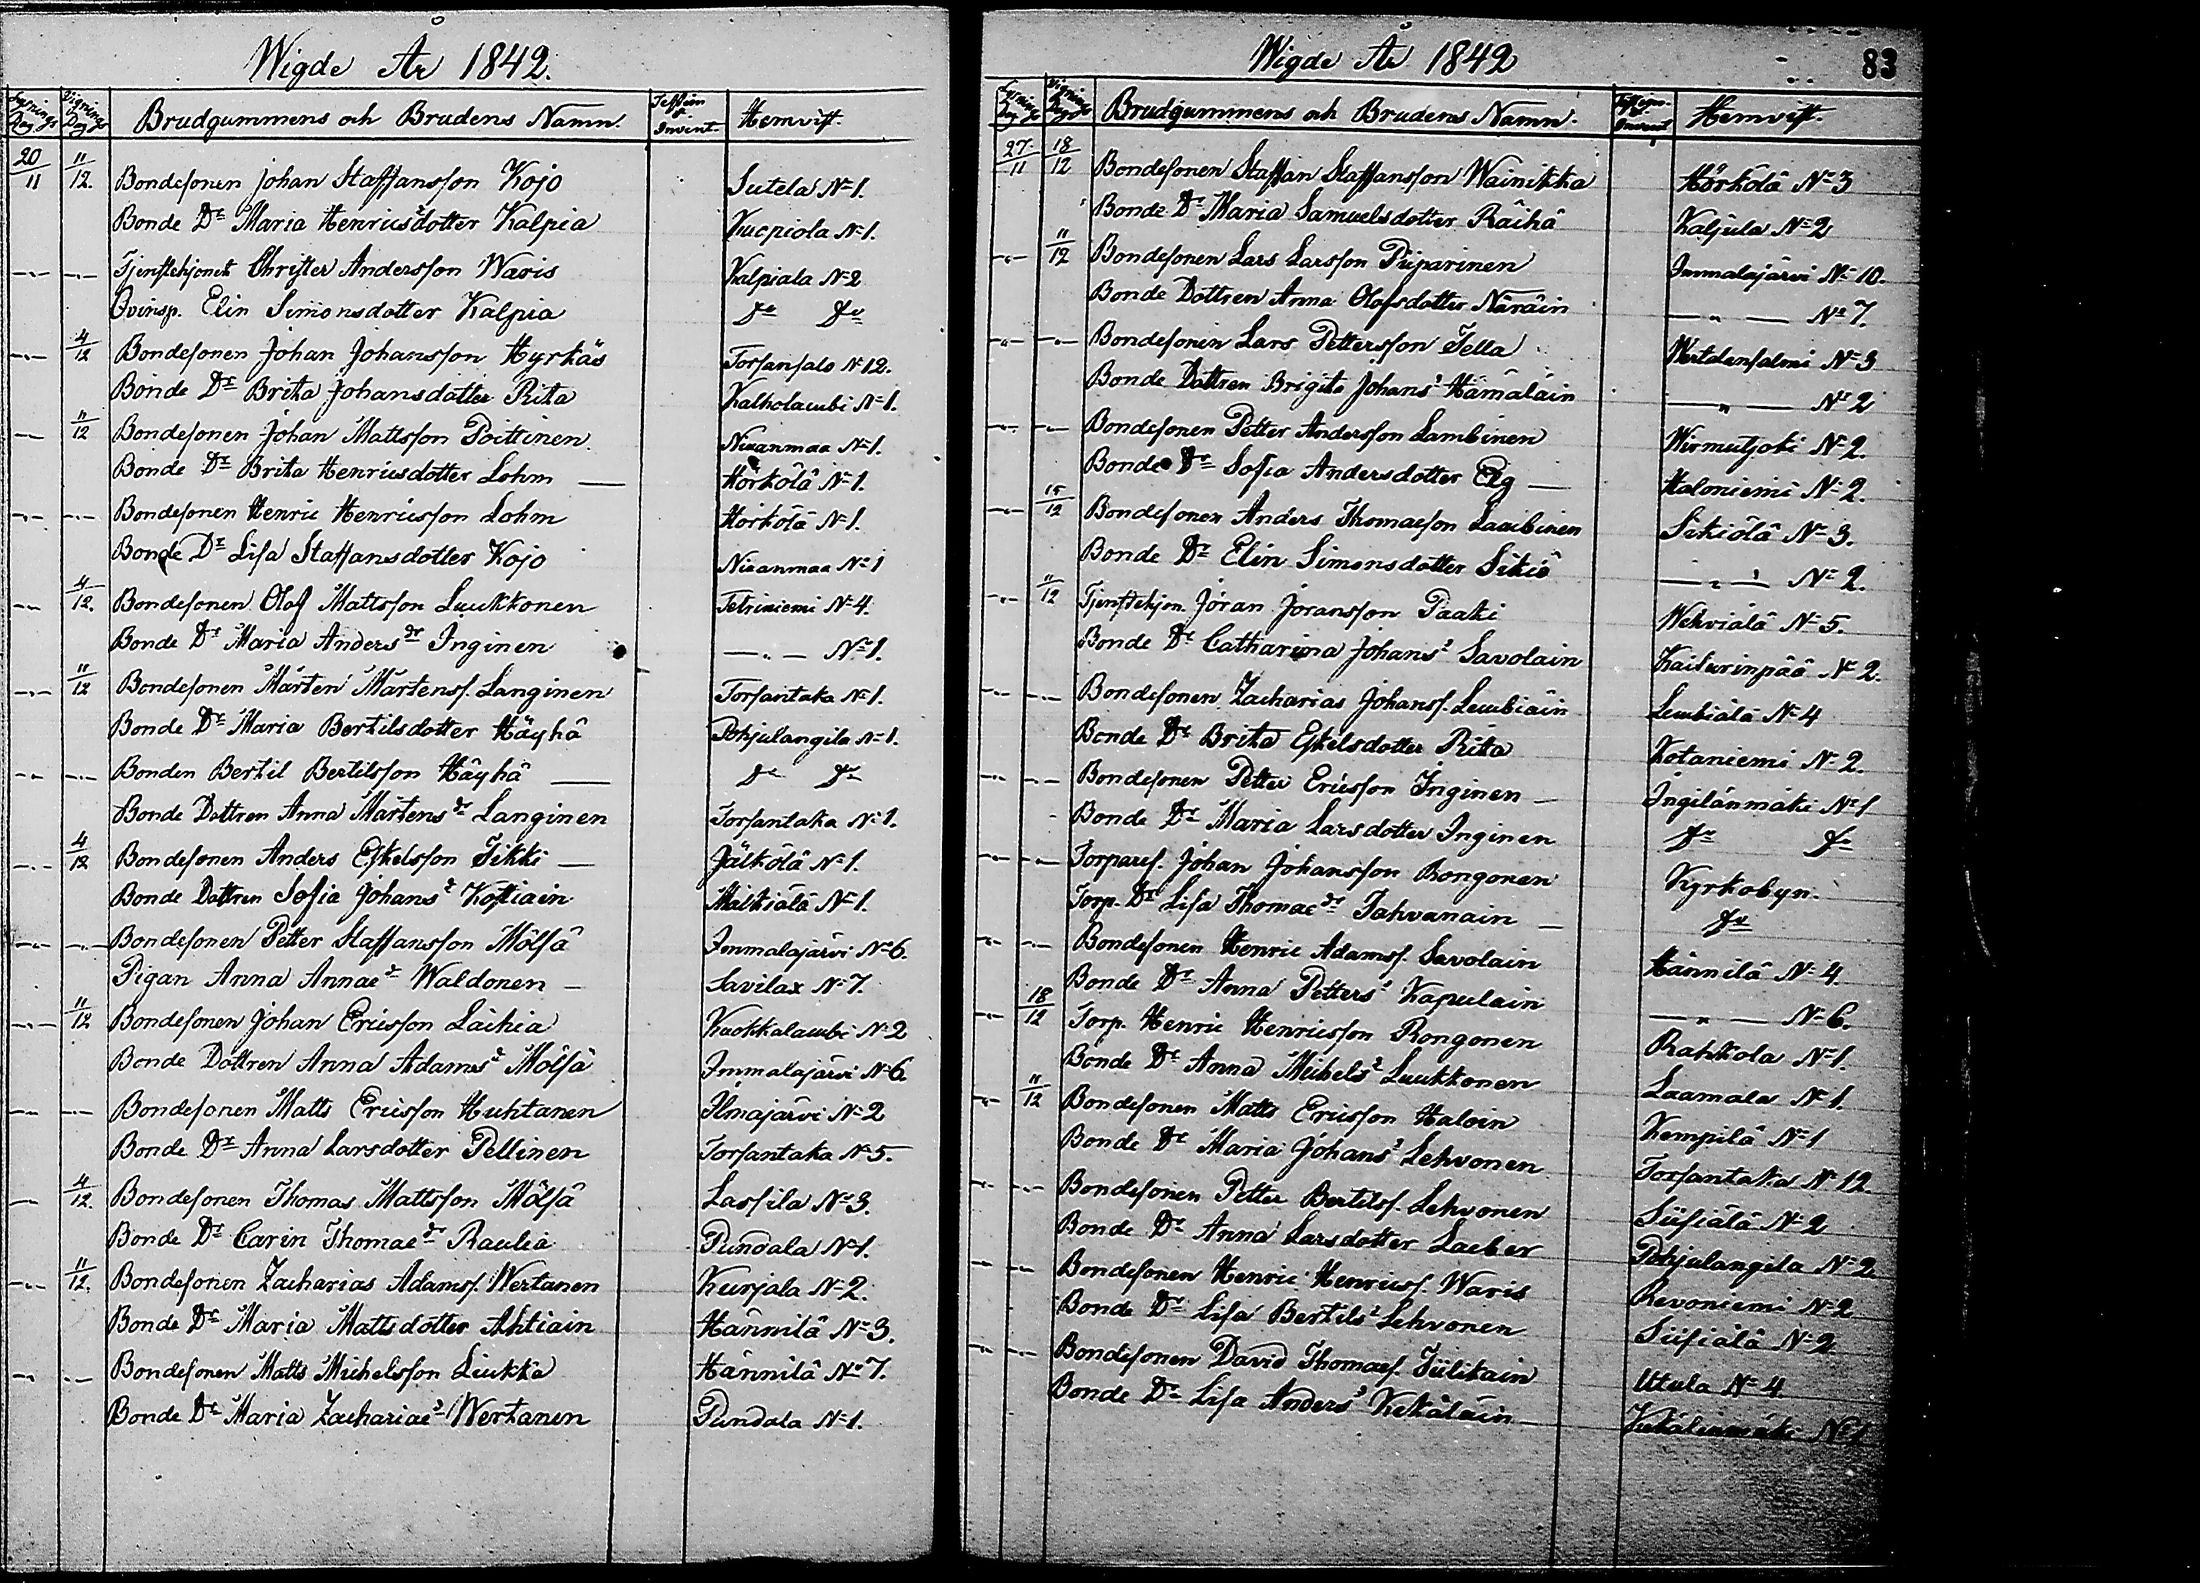 Wigde År 1842.
Lysnings Dag Vignings Dag Brudgummens och Brudens Namn. Invent. Hemvist.
20/11 11/12. Bondesonen Johan Staffansson Kojo Sutela No 1.
Bonde Dr Maria Henricsdotter Kalpia Kuepiola No 1.
—"— —"— Tjenstehjonet Christer Andersson Waris Kalpiala No 2
Qvinsp. Elin Simonsdotter Kalpia Do Do
—"— 4/12 Bondesonen Johan Johansson Hyrkäs Torsansalo No 12.
Bonde Dr Brita Johansdotter Rita Kalholambi No 1.
—"— 11/12 Bondesonen Johan Mattsson Poittinen Niranmaa No 1.
Bonde Dr Brita Henricsdotter Lohm — Hörkölä No 1.
—"— —"— Bondesonen Henric Henricsson Lohm Hörkölä No 1.
Bonde Dr Lisa Staffansdotter Kojo Niranmaa No 1
—"— 4/12. Bondesonen Olof Mattsson Luukkonen Tetriniemi No 4.
Bonde Dr Maria Anders dr Inginen —"— No 1.
—"— 11/12 Bondesonen Mårten Mårtenss. Langinen Torsantaka No 1.
Bonde Dr Maria Bertilsdotter Häyhä Pohjalangila No 1.
—"— —"— Bonden Bertil Bertilsson Häyhä — Do Do
Bonde Dottren Anna Mårtens dr Langinen Torsantaka No 1.
—"— 4/12 Bondesonen Anders Eskelsson Tikki — Jälkölä No 1.
Bonde Dottren Sofia Johans dr Kostiain Mälkiälä No 1.
—"— —"— Bondesonen Petter Staffansson Mölsä Immalajärvi No 6.
Pigan Anna Annae dr Waldonen — Savilax No 7.
—"— 11/12 Bondesonen Johan Ericsson Läikiä Kuokkalambi No 2
Bonde Dottren Anna Adams dr Mölsä Immalajärvi No 6.
—"— —"— Bondesonen Matts Ericsson Huhtanen Ilmajärvi No 2
Bonde Dr Anna Larsdotter Pellinen Torsantaka No 5.
—"— 4/12. Bondesonen Thomas Mattsson Mölsä Lassila No 3.
Bonde Dr Carin Thomae dr Raulia Pundala No 1.
—"— 11/12. Bondesonen Zacharias Adamss. Wertanen Kurjala No 2.
Bonde Dr Maria Mattsdotter Ahtiain Hännilä No 3.
—"— —"— Bondesonen Matts Michelsson Liukka Hännilä No 7.
Bonde Dr Maria Zachariae dr Wertanen Pundala No 1.
Wigde År 1842
83
Lysnings Dag Vignings Dag Brudgummens och Brudens Namn. Invent Hemvist.
27/11 18/12 Bondesonen Staffan Staffansson Wainikka Hörkölä No 3
Bonde Dr Maria Samuelsdotter Räihä Kaljula No 2
—"— 11/12 Bondesonen Lars Larsson Piiparinen Immalajärvi No 10.
Bonde Dottren Anna Olofsdotter Näräin —"— No 7.
—"— —"— Bondesonen Lars Pettersson Tella Wirtalansalmi No 3
Bonde Dottren Brigita Johans dr Hämäläin —"— No 2
—"— —"— Bondesonen Petter Andersson Lambinen Wirmutjoki No 2.
Bonde Dr Sofia Andersdotter Elg — Haloniemi No 2.
—"— 15/12 Bondesonen Anders Thomaeson Lambinen Sikiölä No 3.
Bonde Dr Elin Simonsdotter Sikiö —"— No 2.
—"— 11/12 Tjenstehjon. Jöran Jöransson Paaki Wehviälä No 5.
Bonde Dr Catharina Johans dr Savolain Kaiturinpää No 2.
—"— —"— Bondesonen Zacharias Johanss. Lembiäin Lembiälä No 4
Bonde Dr Brita Eskelsdotter Rita Kotaniemi No 2.
—"— —"— Bondesonen Petter Ericsson Inginen — Ingilänmäki No 1
Bonde Dr Maria Larsdotter Inginen Do Do
—"— —"— Torpares. Johan Johansson Rongonen Kyrkobyn.
Torp. Dr Lisa Thomae dr Tahvanain — Do
—"— —"— Bondesonen Henric Adamss. Savolain Hännilä No 4.
Bonde Dr Anna Petters dr Kapulain —"— No 6.
—"— 18/12 Torp. Henric Henricsson Rongonen Rahkola No 1.
Bonde Dr Anna Michels dr Luukkonen Laamala No 1.
—"— 11/12 Bondesonen Matts Ericsson Haloin Kempilä No 1
Bonde Dr Maria Johans dr Lehvonen Torsantaka No 12.
—"— —"— Bondesonen Petter Bertilss. Lehvonen Siisiälä No 2
Bonde Dr Anna Larsdotter Laeber Pohjalangila No 2.
—"— —"— Bondesonen Henric Henricss. Waris Revoniemi No 2
Bonde Dr Lisa Bertils dr Lehvonen Siisiälä No 2
—"— —"— Bondesonen David Thomaes. Tiilikain Utula No 4.
Bonde Dr Lisa Anders dr Kekäläin Kekäleenmäki No 1